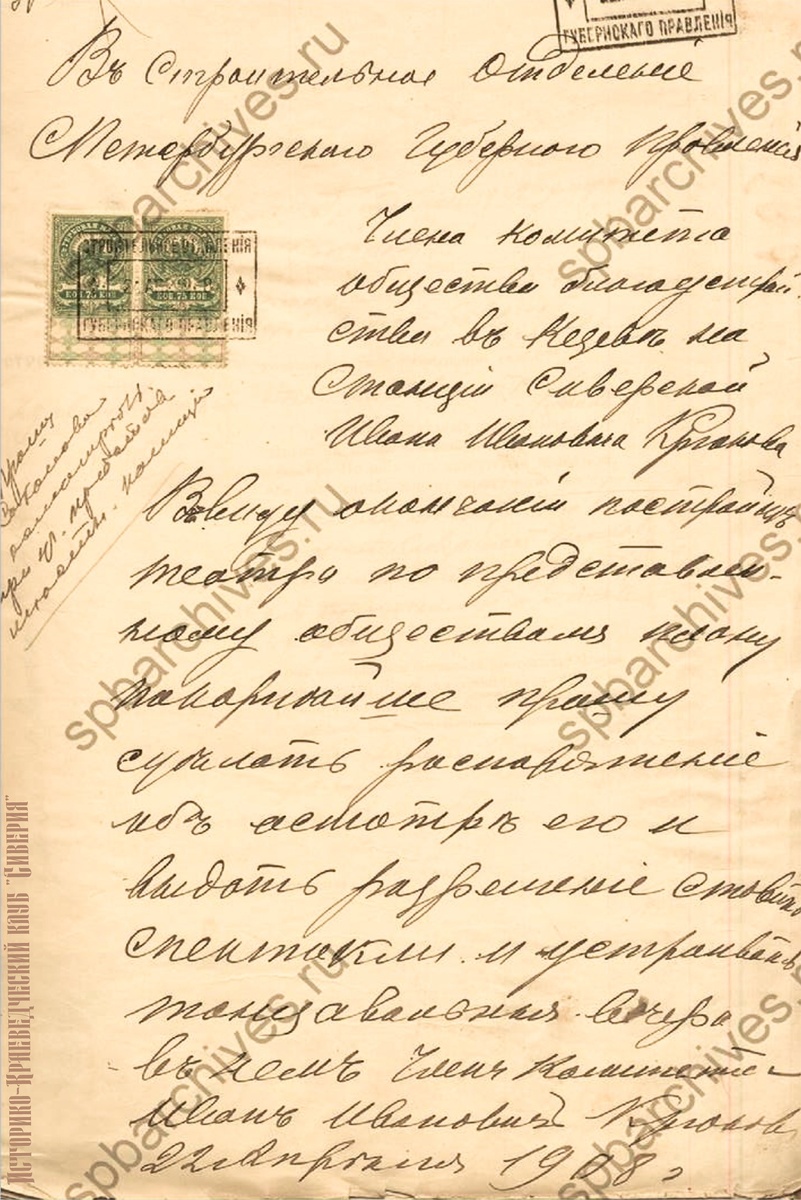 ГУБЕРНСКАГО ПРАВЛЕНІЯ
Въ Строительное Отделеніе
Петербургскаго Губерного Правленія
Члена комитета
общества благоустрой
ства въ Кезевѣ на
Станціи Сиверской
Ивана Ивановича Крюкова
СТРОИТЕЛЬНОЕ ОТДѢЛЕНІЯ
КОП 75 КОП КОП 75 КОП
ГУБЕРНСКАГО ПРАВЛЕНІЯ
Прошу
Ввиду окончанія постройки
театра по представлен-
ному обществомъ плану
покорнѣйше прошу
сделать распоряженіе
объ осмотрѣ его и
выдать разрешеніе ставить
спектакли и устраивать
танцовальныя вечера
въ немъ Членъ Комитета
Иванъ Ивановичъ Крюковъ
22 Апреля 1908 г
Историко-Краеведческий клуб "Сиверия"
spbarchives.ru